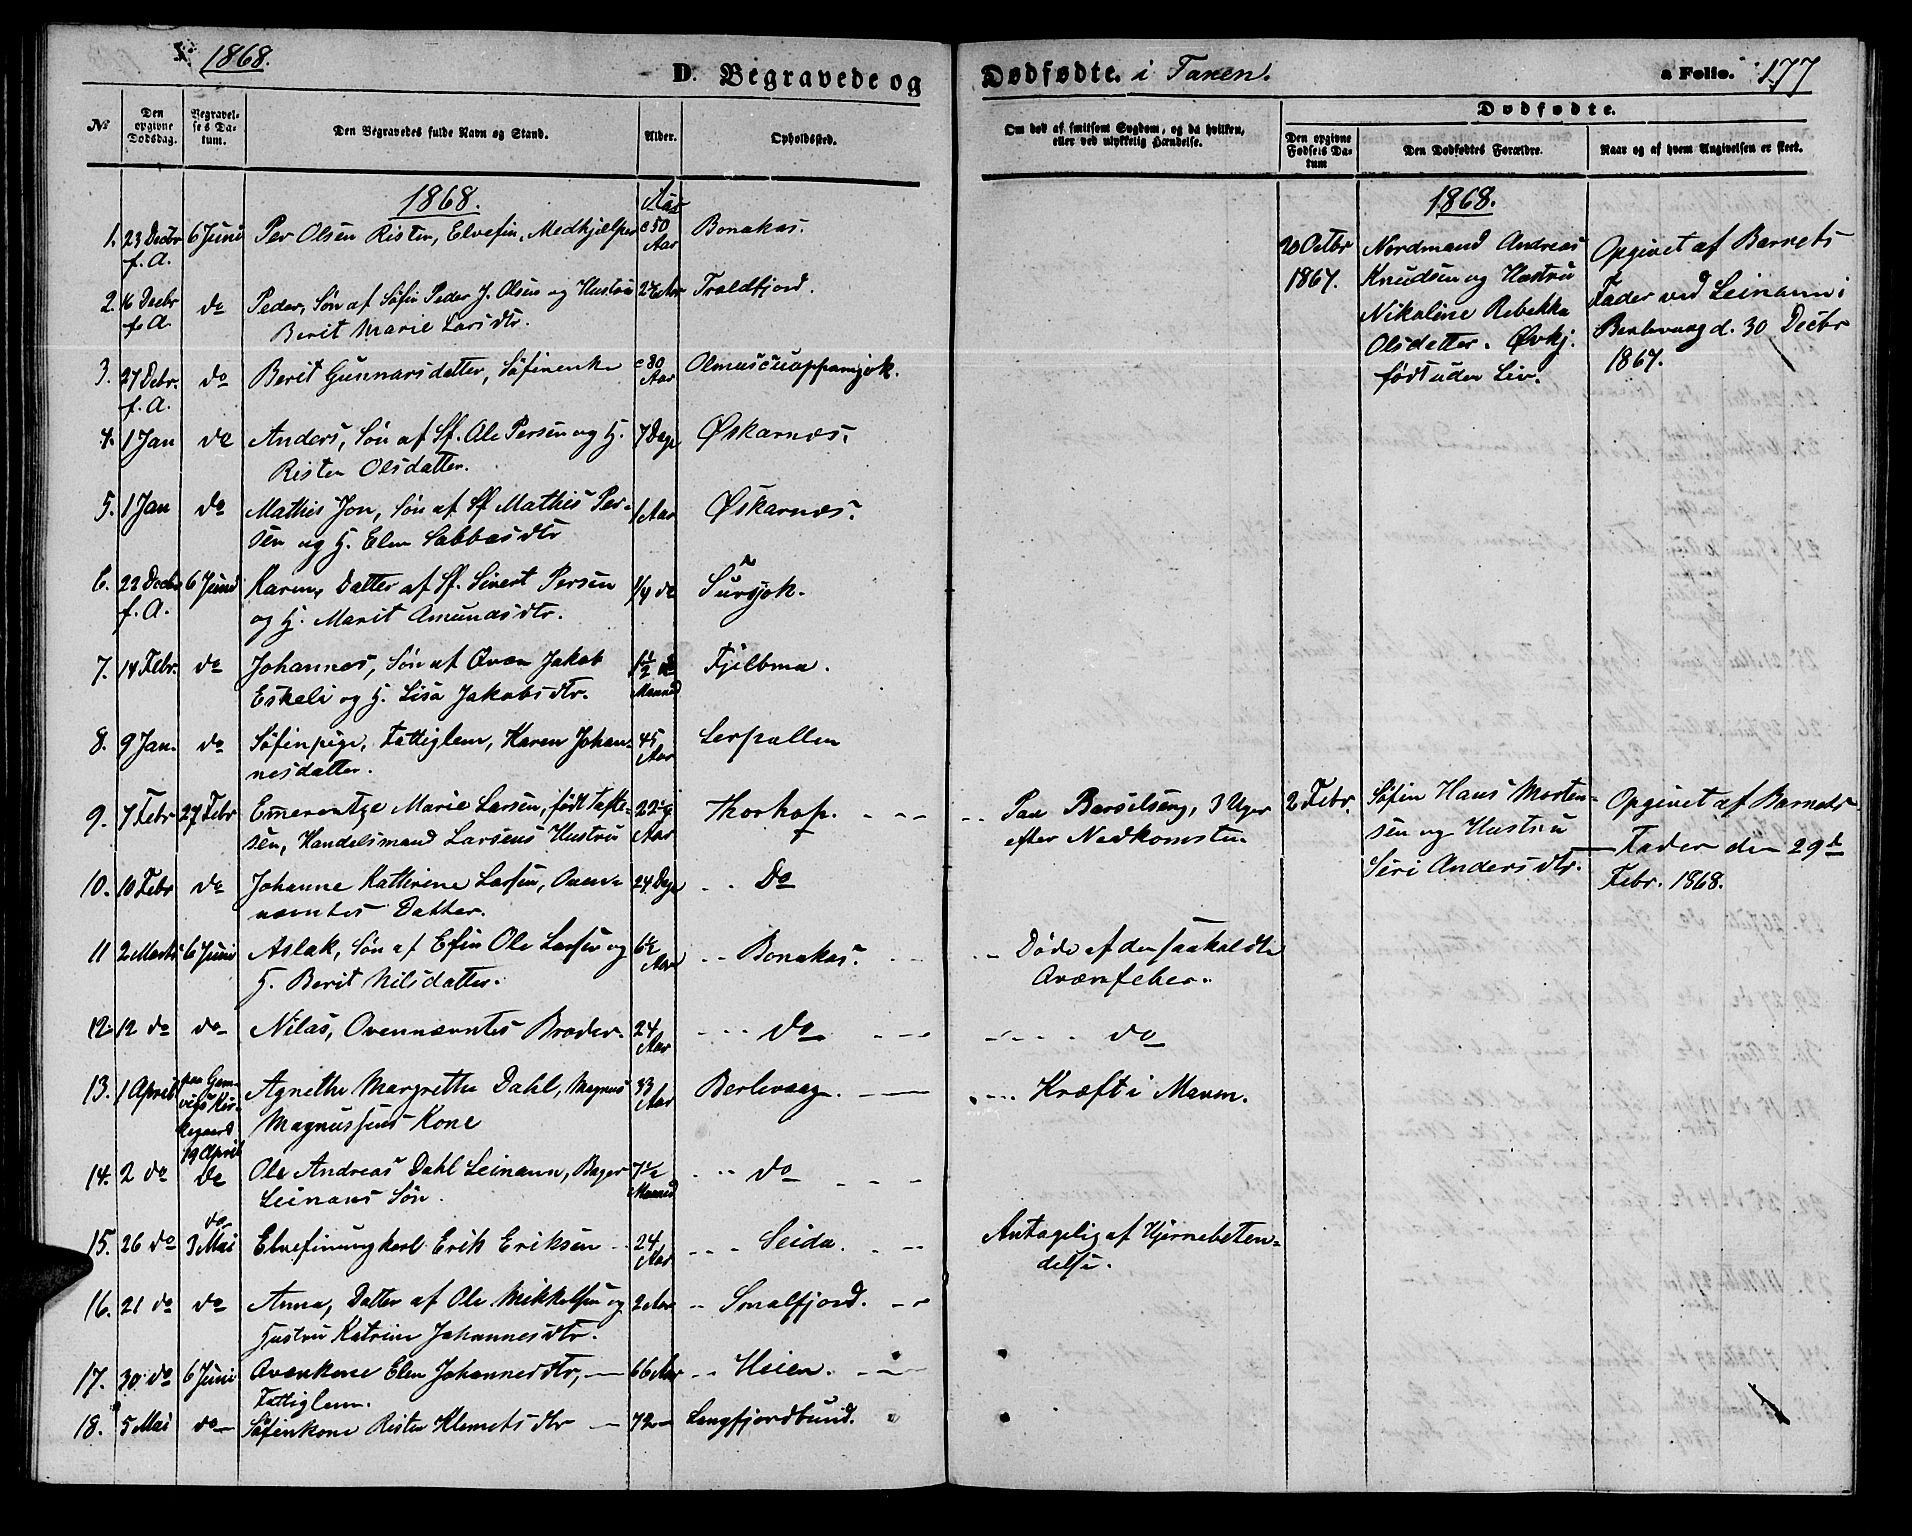 1868.
D. Begravede og
Dødfødte. i Tanen.
a Folio. 177
№
Den opgivne Dødsdag.
Begravelses Datum.
Den Begravedes fulde Navn og Stand.
Alder.
Opholdssted.
Om død af smitsom Sygdom, og da hvilken, eller ved ulykkelig Hændelse.
Dødfødte.
Den opgivne Fødsels Datum
Den Dødfødtes Forældre.
Naar og af hvem Angivelsen er skeet.
1868. Aar
1. 23 Decbr f. A. 6 Juni Per Olsen Risten, Elvefin, Medhjelper c 50 Aar Bonakas.
2. 16 Decbr f. A. do Peder, Søn af Søfin Peder J. Olsen og Hustru
Berit Marie Larsdtr. Troldfjord.
3. 27 Debr. f. A. do Berit Gunnarsdatter, Søfinenke c 80 Aar
4. 1 Jan do Anders, Søn af Sf. Ole Persen og H.
Risten Olsdatter. 7 Dage Øskarnæs.
5. 1 Jan do Mathis Jon, Søn af Sf Mathis Per-
sen og H. Elen Sabbasdtr 1 Aar Øskarnæs.
6. 22 Decbr f. A. 6 Juni Karen, Datter af Sf. Sivert Persen
og H. Marit Amundsdtr. 1/4 do
7. 14 Febr. do Johannes, Søn af Qvæn Jakob
Eskeli og H. Lisa Jakobsdtr. 1½ Maaned Fjelbma.
8. 9 Jan. do Søfinpige, Fattiglem, Karen Johan-
nesdatter. 45 Aar Lerpollen
9. 7 Febr 27 Febr Emerentze Marie Larsen, født
sen, Handelsmand Larsens Hustru 22 Aar Thorhop. Paa Barselseng, 3 Uger
efter Nedkomsten
10. 10 Febr do Johanne Kathrene Larsen, Oven-
nævntes Datter. 24 Dage Do
11 2 Marts 6 Juni Aslak, Søn af Efin Ole Larsen og
H. Berit Nilsdatter. 6½ Aar Bonakas. Døde af den saakaldte
Qværnfeber.
12. 12 do do Nilas, Ovennævntes Broder. 24 Aar do do
13. 1 April paa Gam-
viks Kir-
kegaard
19 April Agnethe Margrethe Dahl, Magnus
Magnussens Kone 33 Aar Berlevaag Kræft i Maven.
14. 2 do do Ole Andreas Dahl Leinann, Bager
Leinans Søn. 7½ Maaned do
15. 26 do do 3 Mai Elvefinungkarl Erik Eriksen 24 Aar Seida. Antagelig af Hjernebeten-
delse.
16. 21 do do Anna, Datter af Ole Mikkelsen og
Hustru Katrine Johannesdtr. 2 Aar Smalfjord.
17. 30 do 6 Juni Qvænkone Elen Johannesdtr,
Fattiglem. 66 Aar Heien.
18. 5 Mai do Søfinkone Risten Klemetsdtr 72 Langfjordbund.
1868.
20 Octbr 1867. Nordmand Andreas
Knudsen og Hustru
Nikoline Rebekka
Olsdatter.
født uden Liv.
Opgivet af Barnets
Fader ved Leinann i
Berlevaag d. 30 Decbr
1867.
2 Febr. Søfin Hans Morten-
sen og Hustru
Seri Andersdtr.
Opgivet af Barnets
Fader den 29de
Febr. 1868.